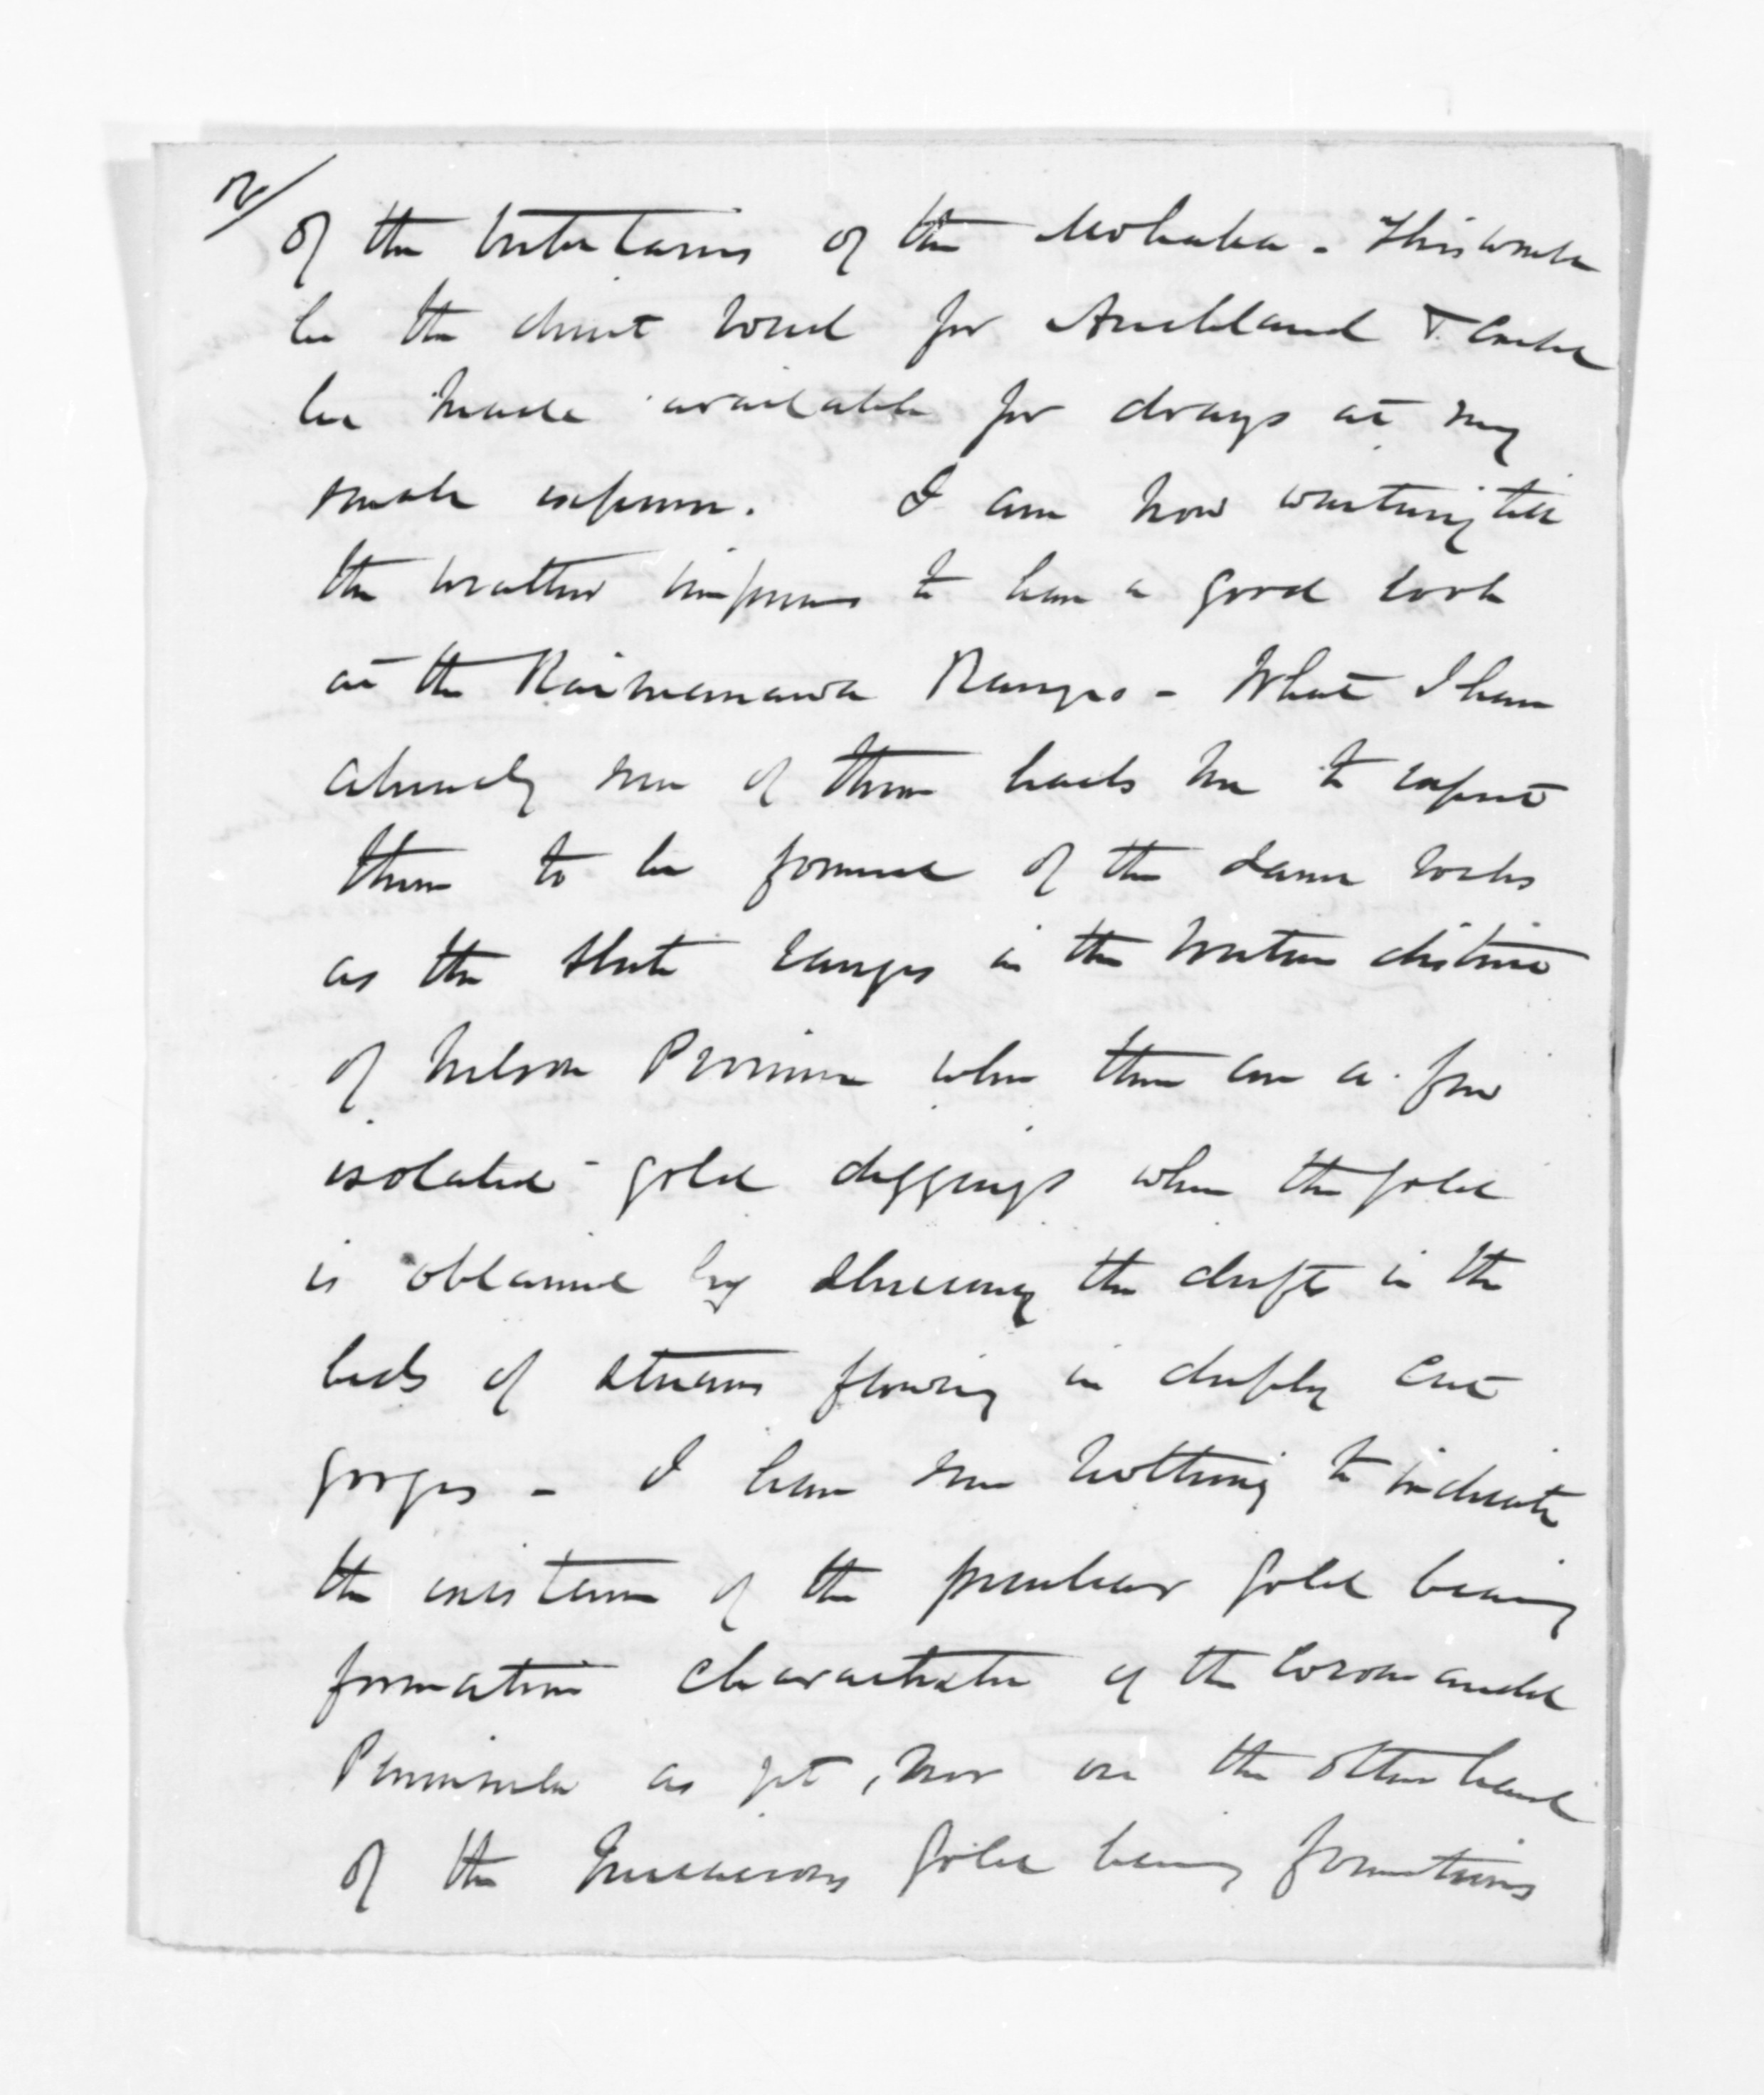 2/
of the tributaries of the Mohaka - This would
be the direct road for Auckland & could
be made available for drays at very
small expense. I am now waiting till
the weather improves to have a good look
at the Kaimanawa Ranges - What I have
already seen of them leads me to expect
them to be formed of the same rocks
as the slate ranges in the western district
of Nelson Province where there are a few
isolated gold diggings where the gold
is obtained by sluicing the drifts in the
beds of streams flowing in deeply cut
gorges - I have seen nothing to indicate
the existence of the peculiar gold bearing
formation characteristic of the Coromandel
Peninsula as yet, nor on the other hand
of the gold bearing formations